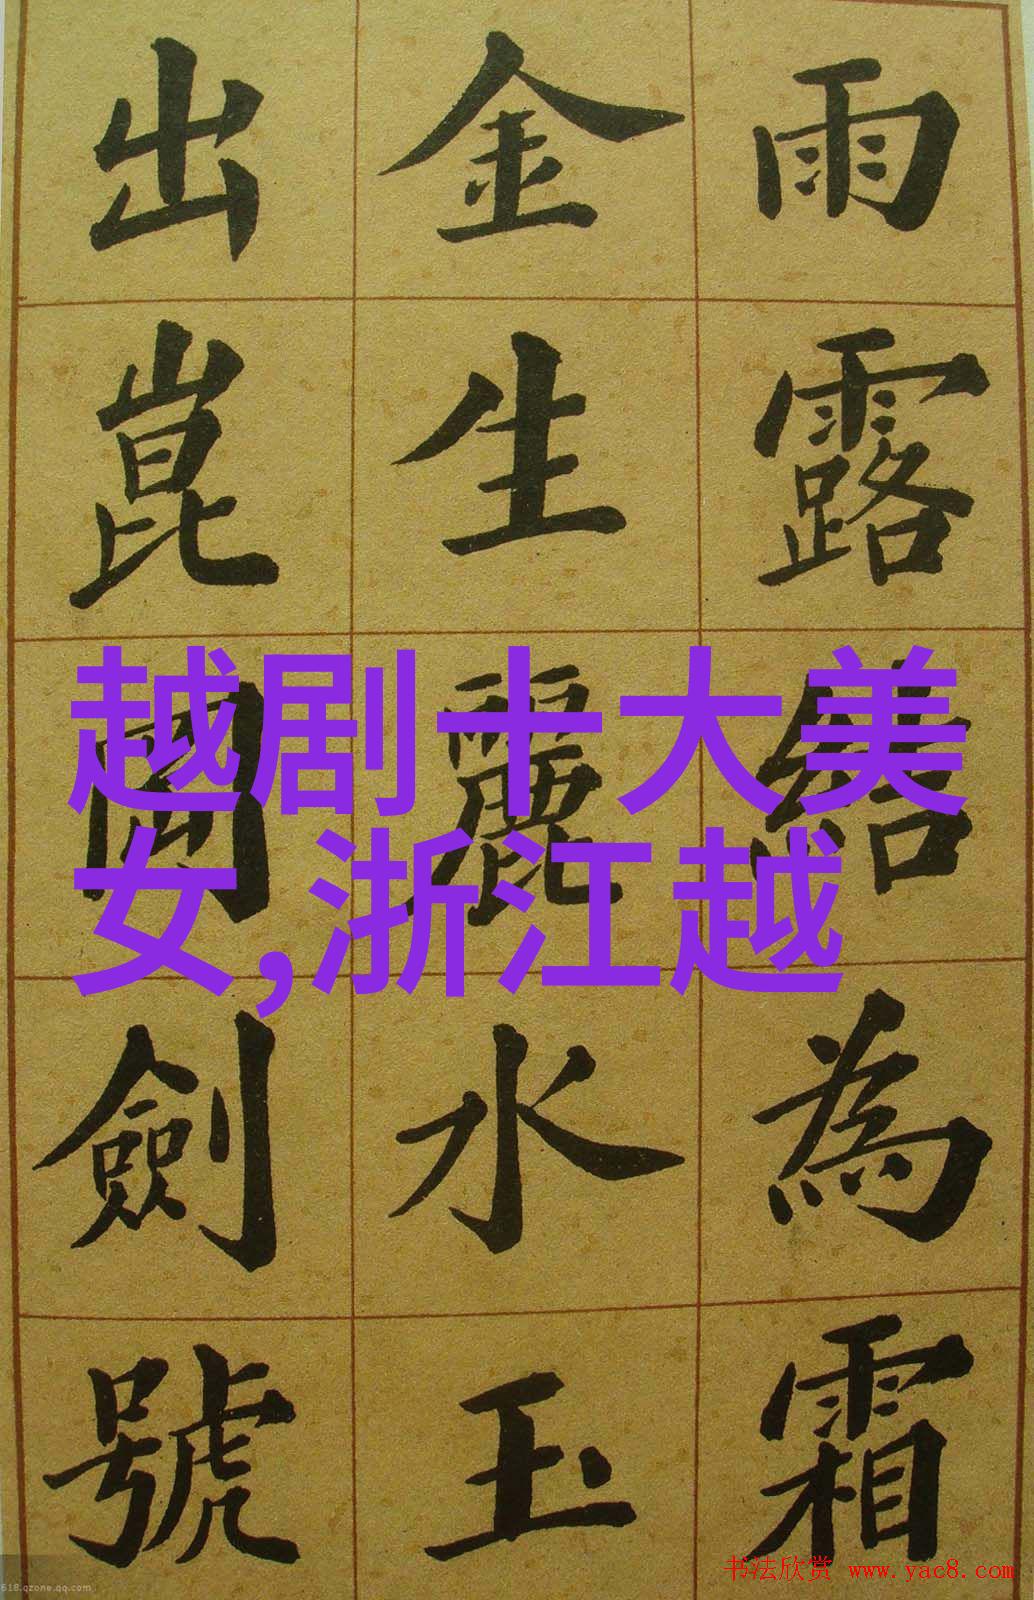 雨露結為霜
金生麗水玉
出崑岡劍號
越剧十大美
女,浙江越
书法欣赏 www.yac8.com
618.qzone.qq.com